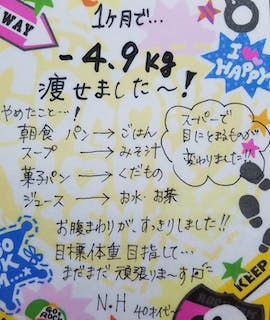 WAY
1ヶ月で…
-4.9kg
痩せました〜!
I ♥ HAPPY
やめたこと…!
朝食 パン → ごはん
スープ → みそ汁
菓子パン → くだもの
ジュース → お水・お茶
スーパーで
目にとまるものが
変わりました!!
お腹まわりが、すっきりしました!!
目標体重目指して…
まだまだ頑張りま〜す
N.H 40才
KEEP
GO!
ROCK